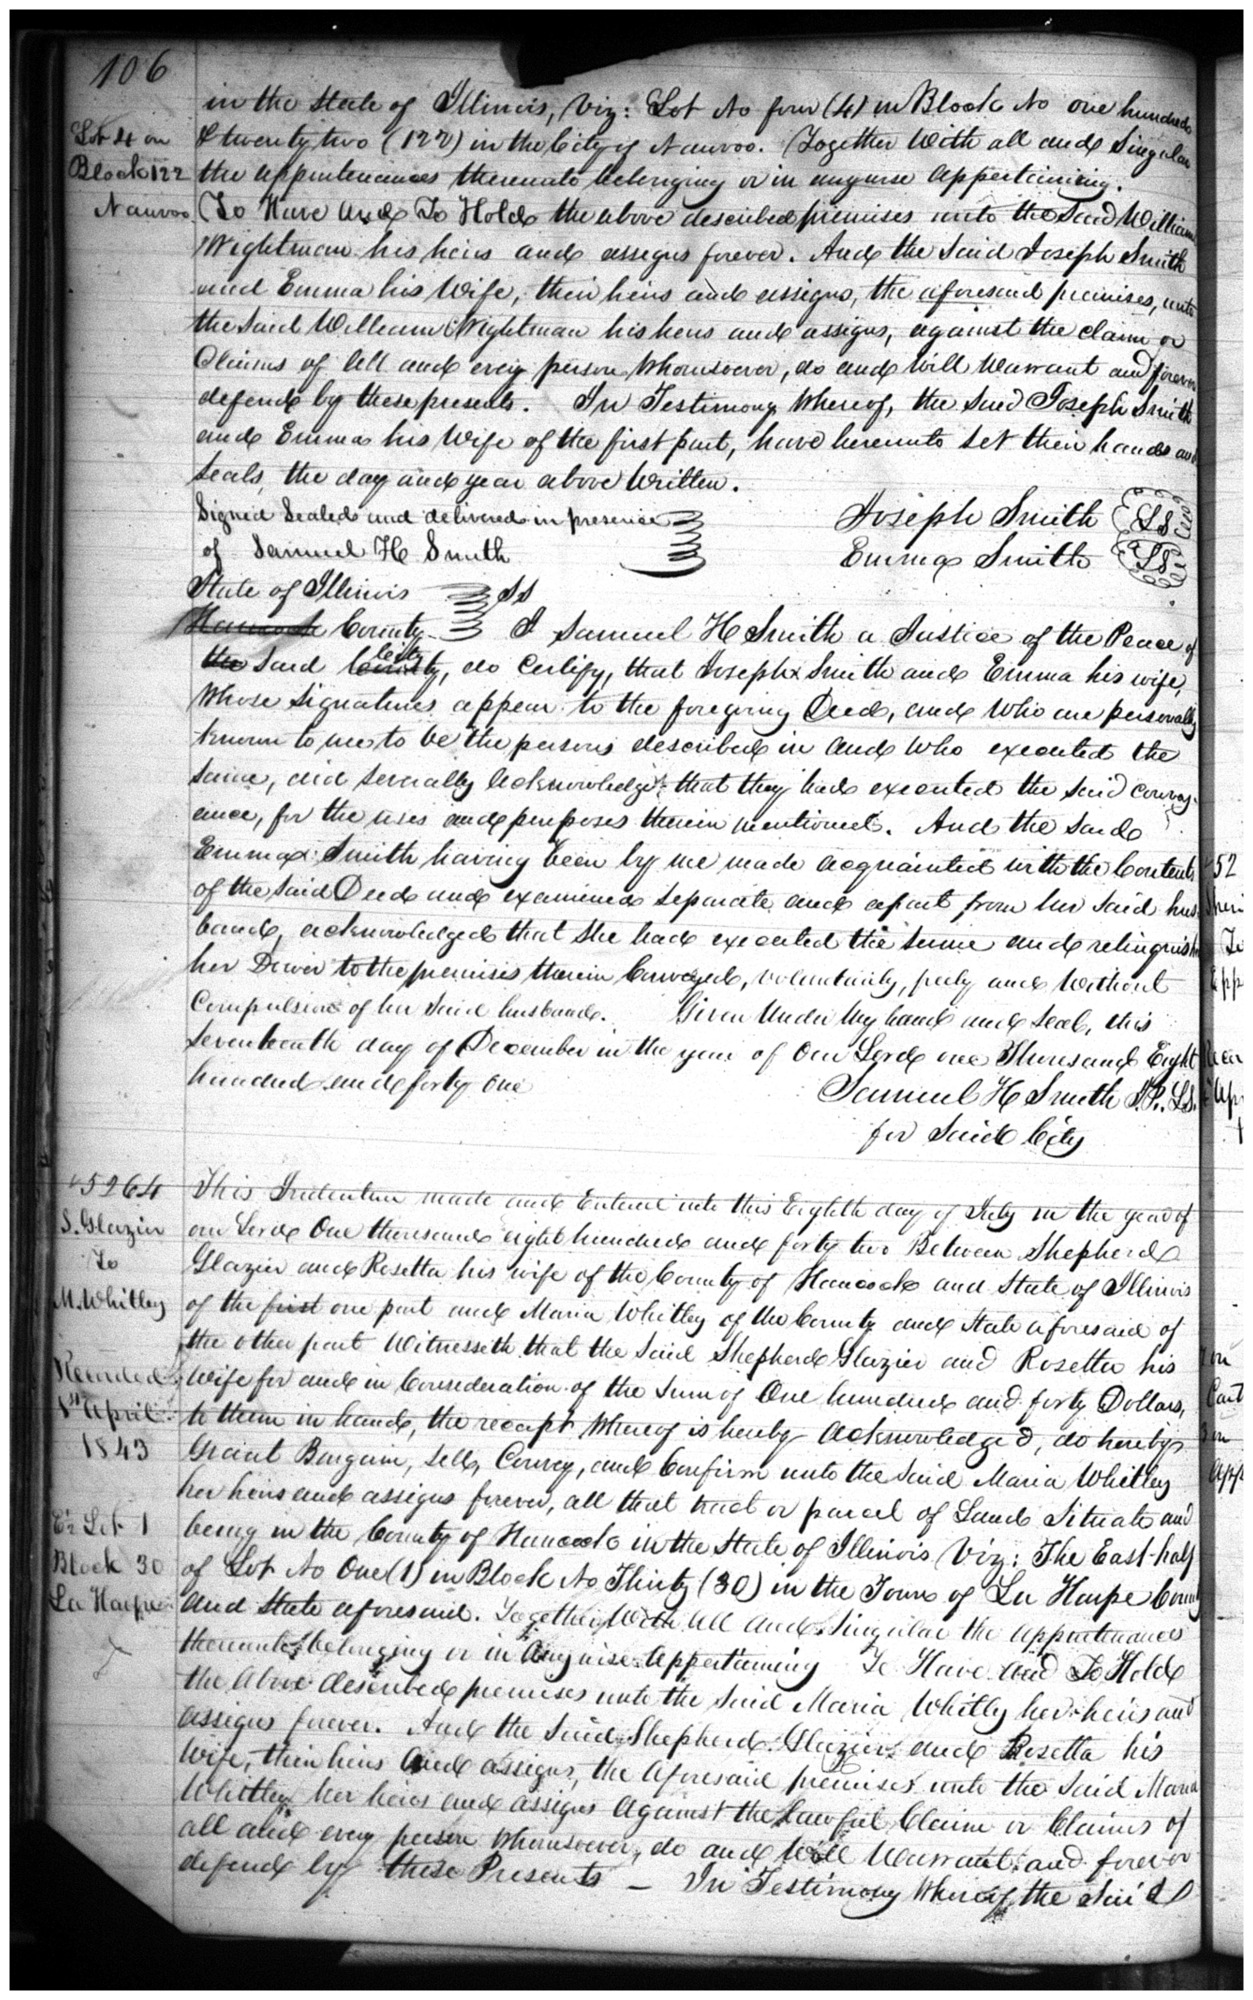 106
in the State of Illinois, Viz: Lot No four (4) in Block No one hundred
Lot 4 on
Block 122
Nauvoo
& twenty two (122) in the City of Nauvoo. Together With all and Singular
the appurtenances thereunto belonging or in anywise appertaining.
To Have and To Hold the above described premises unto the Said William
Wightman his heirs and assigns forever. And the Said Joseph Smith
and Emma his Wife, their heirs and assigns, the aforesaid premises, unto
the Said William Wightman his heirs and assigns, against the claim or
Claims of all and every person Whomsoever, do and Will Warrant and forever
defend by these presents. In Testimony Whereof, the Said Joseph Smith
and Emma his Wife of the first part, have hereunto set their hands and
Seals, the day and year above Written.
Signed Sealed and delivered in presence
of Samuel H Smith
Joseph Smith LS
Emma Smith LS
State of Illinois SS
Hancock County I Samuel H Smith a Justice of the Peace of
the Said County City, do Certify, that Joseph Smith and Emma his wife,
Whose Signatures appear to the foregoing Deed, and Who are personally
known to me to be the persons described in and Who executed the
Same, did severally acknowledge that they had executed the Said convey-
ance, for the uses and purposes therein mentioned. And the Said
Emma Smith having been by me made acquainted with the Contents
of the Said Deed and examined separate and apart from her Said hus-
band, acknowledged that She had executed the Same and relinquished
her Dower to the premises therein Conveyed, voluntarily, freely and Without
Compulsion of her Said husband. Given Under my hand and Seal, this
Seventeenth day of December in the year of Our Lord one Thousand Eight
hundred and forty one
Samuel H Smith J.P. LS.
for Said City
5264
S. Glazier
To
M. Whitley
Recorded
1st April
1843
E½ Lot 1
Block 30
La Harpe
This Indenture made and Entered into this Eighth day of July in the year of
our Lord One thousand eight hundred and forty two Between Shepherd
Glazier and Rosetta his wife of the County of Hancock and State of Illinois
of the first one part and Maria Whitley of the County and State aforesaid of
the other part Witnesseth that the Said Shepherd Glazier and Rosetta his
Wife for and in Consideration of the Sum of One hundred and forty Dollars,
to them in hand, the receipt Whereof is hereby acknowledged, do hereby
Grant Bargain, Sell, Convey, and Confirm unto the Said Maria Whitley
her heirs and assigns forever, all that tract or parcel of Land Situate and
being in the County of Hancock in the State of Illinois Viz: The East half
of Lot No One (1) in Block No Thirty (30) in the Town of La Harpe County
and State aforesaid. Together With all and Singular the appurtenances
thereunto belonging or in Anywise Appertaining To Have and To Hold
the above described premises unto the Said Maria Whitley her heirs and
assigns forever. And the Said Shepherd Glazier and Rosetta his
Wife, their heirs and assigns, the aforesaid premises unto the Said Maria
Whitley her heirs and assigns against the lawful Claim or Claims of
all and every person Whomsoever, do and Will Warrant and forever
defend by these Presents — In Testimony Whereof, the Said